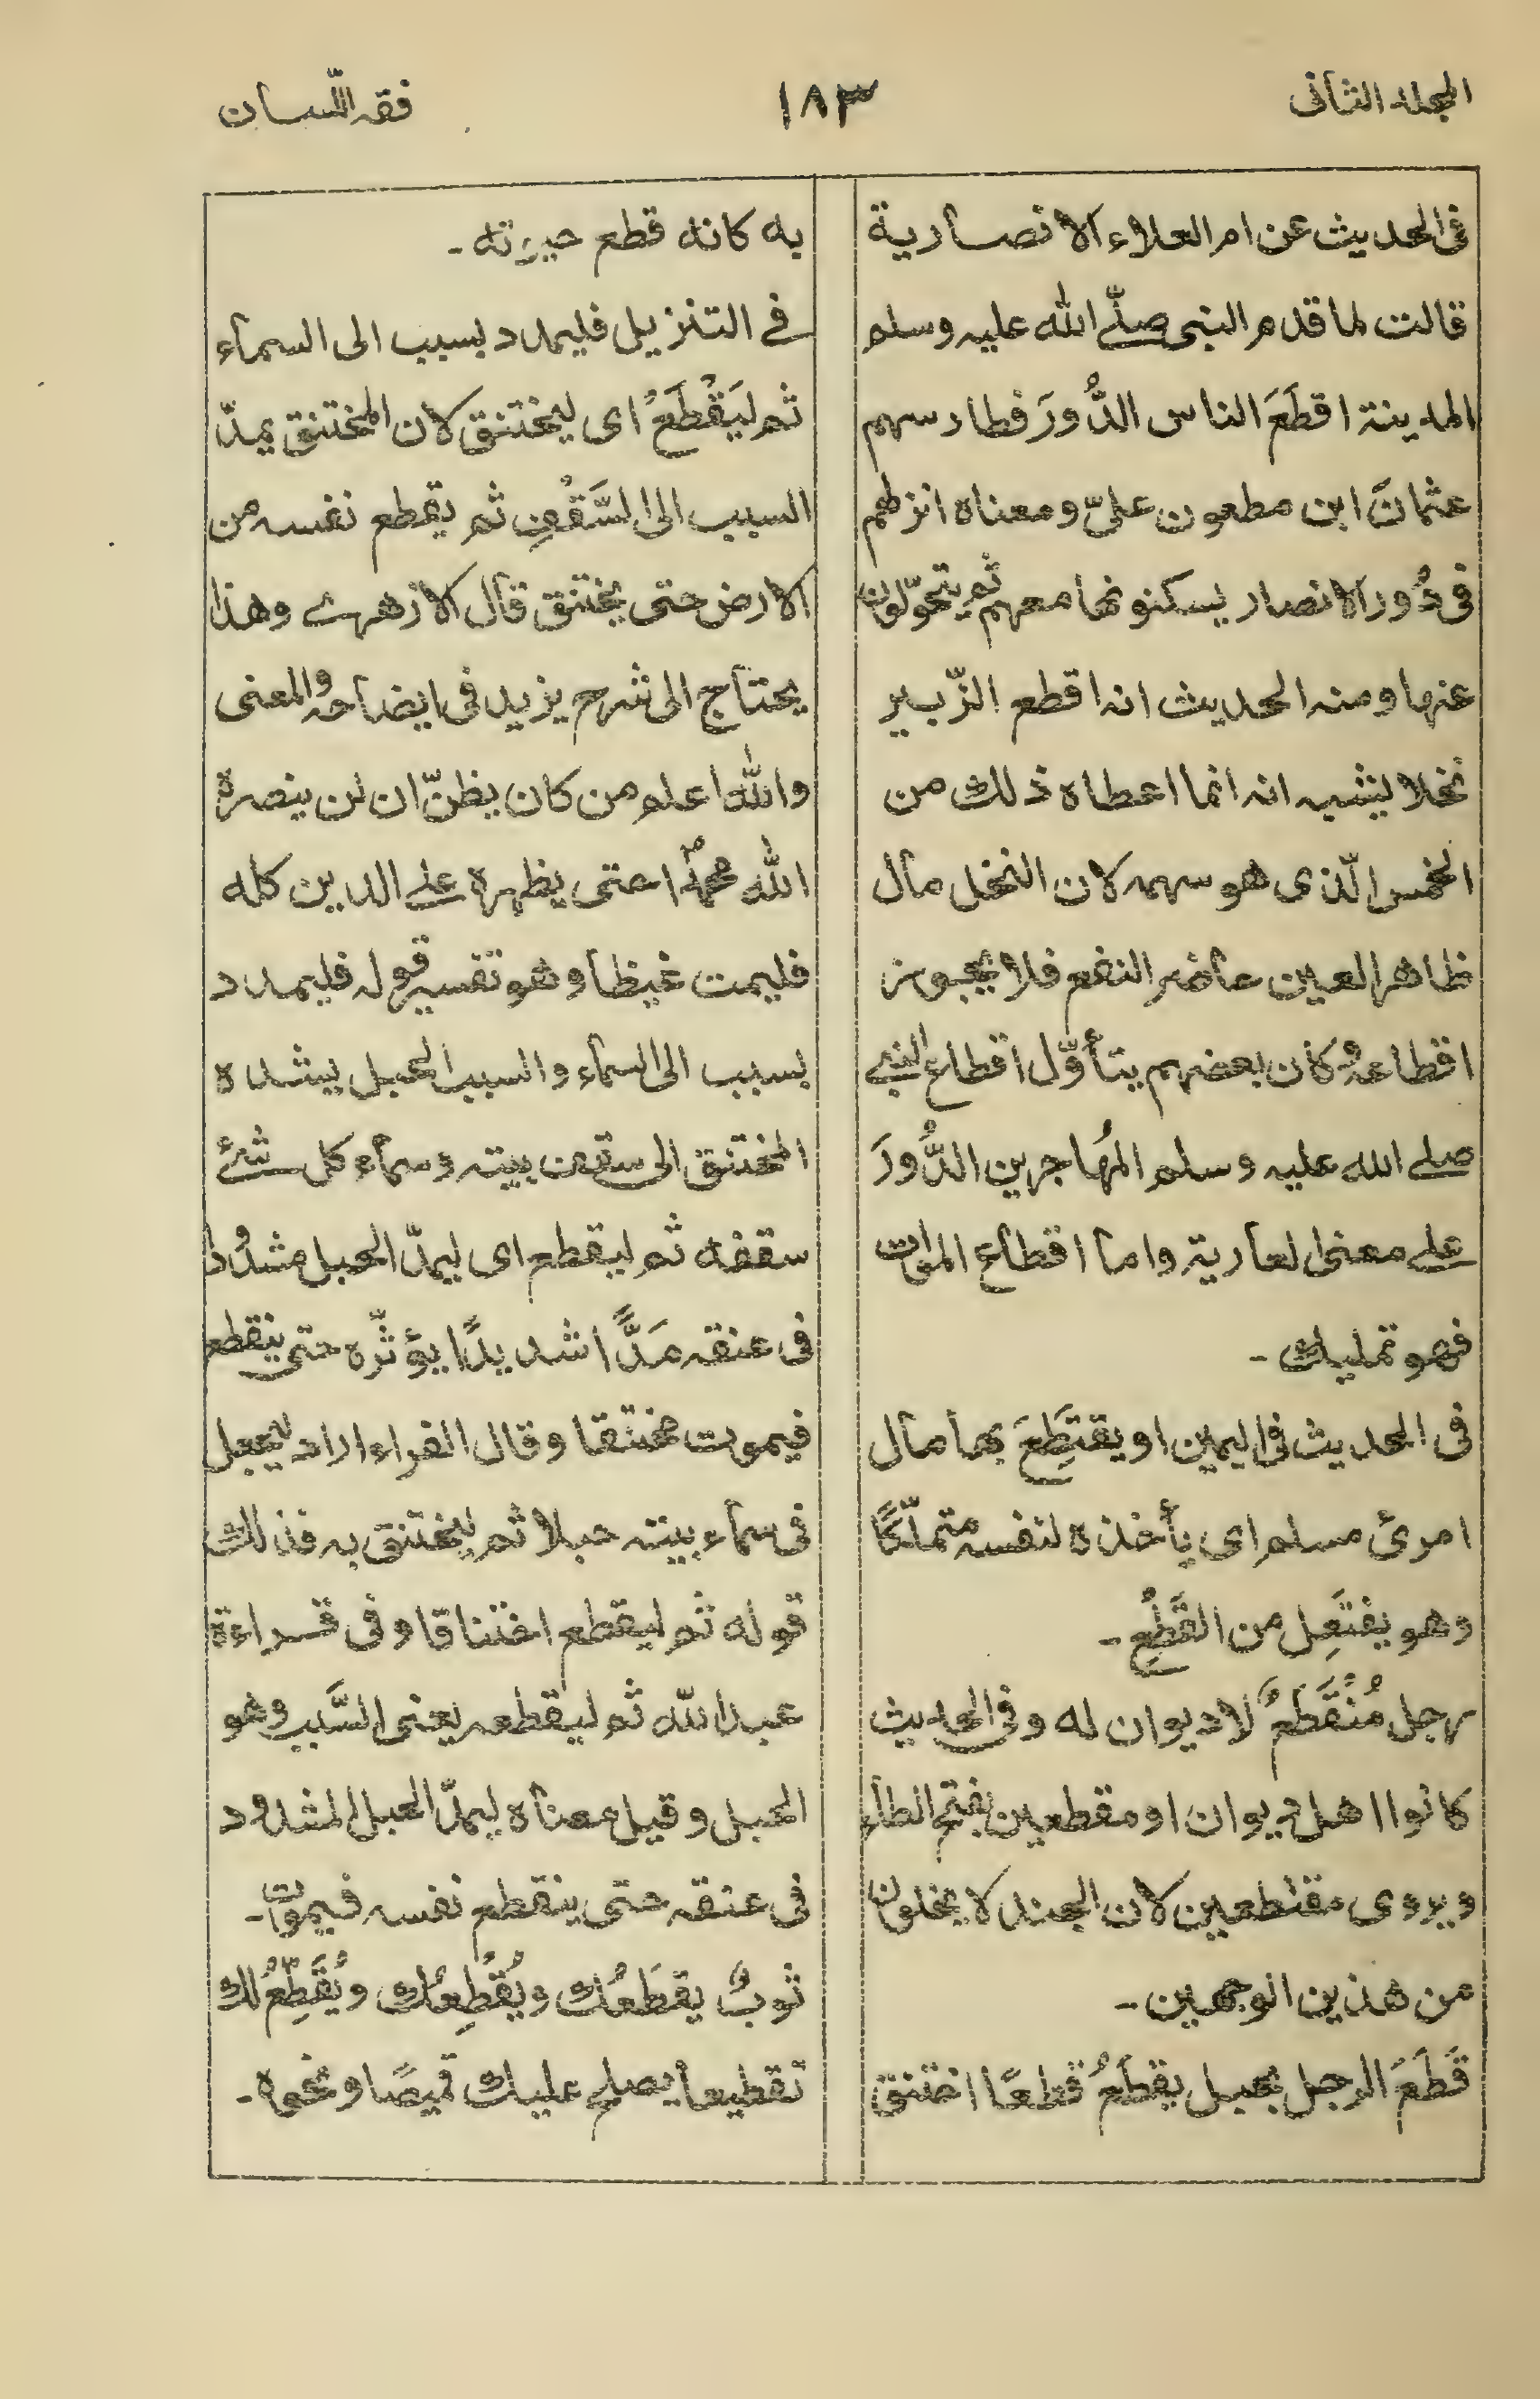 المجلد الثانى
١٨٣
فقه اللسان
فى الحديث عن ام العلاء الانصارية
قالت لما قدم النبى صلّے اللّٰه عليه وسلم
المدينة اقطَعَ الناس الدُّورَ فطار سهم
عثمانَ ابن مطعون علىّ ومعناه انزلهم
فى دُور الانصار يسكنونها معهم ثم يتحوّلون
عنها ومنه الحديث انه اقطع الزّبير
نخلا يشبه انه انما اعطاه ذلك من
الخمس الّذى هو سهمه لان النخل مال
ظاهر العين حاضر النفع فلا يجوز
اقطاعه وكان بعضهم يتأوّل اقطاع النبے
صلے الله عليه وسلم المُهاجرين الدُّورَ
علے معنى العارية واما اقطاع الموات
فهو تمليك ـ
فى الحديث فى اليمين او يقتَطِعَ بها مال
امرئ مسلم اى يأخذه لنفسه متملّكًا
وهو يفتَعِل من القَطْعِ ـ
رجل مُنْقَطَعٌ لا ديوان له وفى الحديث
كانوا اهل ديوان او مقطعين بفتح الطاء
ويروى مقتطعين لان الجند لا يخلون
من هذين الوجهين ـ
قَطَعَ الرجل بحبل يقطَعُ قطعًا اختنق
به كانه قطع حيرته ـ
فے التنزيل فليمدد بسبب الى السماء
ثم ليَقْطَعْ اى ليختنق لان المختنق يمدّ
السبب الى السَّقْفِ ثم يقطع نفسه من
الارض حتى يختنق قال الازهرے وهذا
يحتاج الى شرح يزيد فى ايضاحه والمعنى
واللّٰه اعلم من كان يظنّ ان لن ينصره
اللّٰه محمّدًا حتى يظهره علے الدين كله
فليمت غيظا وهو تفسير قوله فليمدد
بسبب الى السماء والسبب الحبل يشده
المختنق الى سقف بيته وسماء كل شئ
سقفه ثم ليقطع اى ليمدّ الحبل مشدُودا
فى عنقه مَدًّا شديدًا يؤثّره حتى ينقطع
فيموت مختنقا وقال الفراء اراد ليجعل
فى سماء بيته حبلا ثم ليختنق به فذلك
قوله ثم ليقطع اختناقا وفى قراءة
عبد اللّٰه ثم ليقطعه يعنى السَّبب وهو
الحبل وقيل معناه ليمدّ الحبل المشدود
فى عنقه حتى ينقطع نفسه فيموت ـ
ثوبٌ يقطَعُك ويُقْطِعُك ويُقَطِّعُ لك
تقطيعا يصلح عليك قميصًا ونحوه ـ